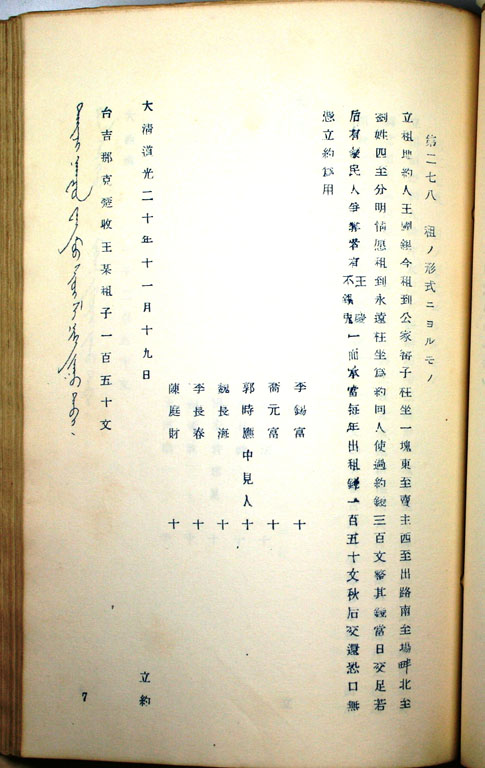 第二七八 租ノ形式ニヨルモノ
立租地約人王國銀今租到公家窑子柱坐一塊東至賣主西至出路南至場畔北至
劉姓四至分明情愿租到永遠柱坐爲約同人使過約錢三百文整其錢當日交足若
后有蒙民人爭奪者有王慶不錫鬼一面承當每年出租錢一百五十文秋后交還恐口無
憑立約爲用
李錫富 十
喬元富 十
郭時應中見人 十
魏長海 十
李長春 十
陳庭財 十
大清道光二十年十一月十九日 立約
台吉那克 收王某租子一百五十文
7